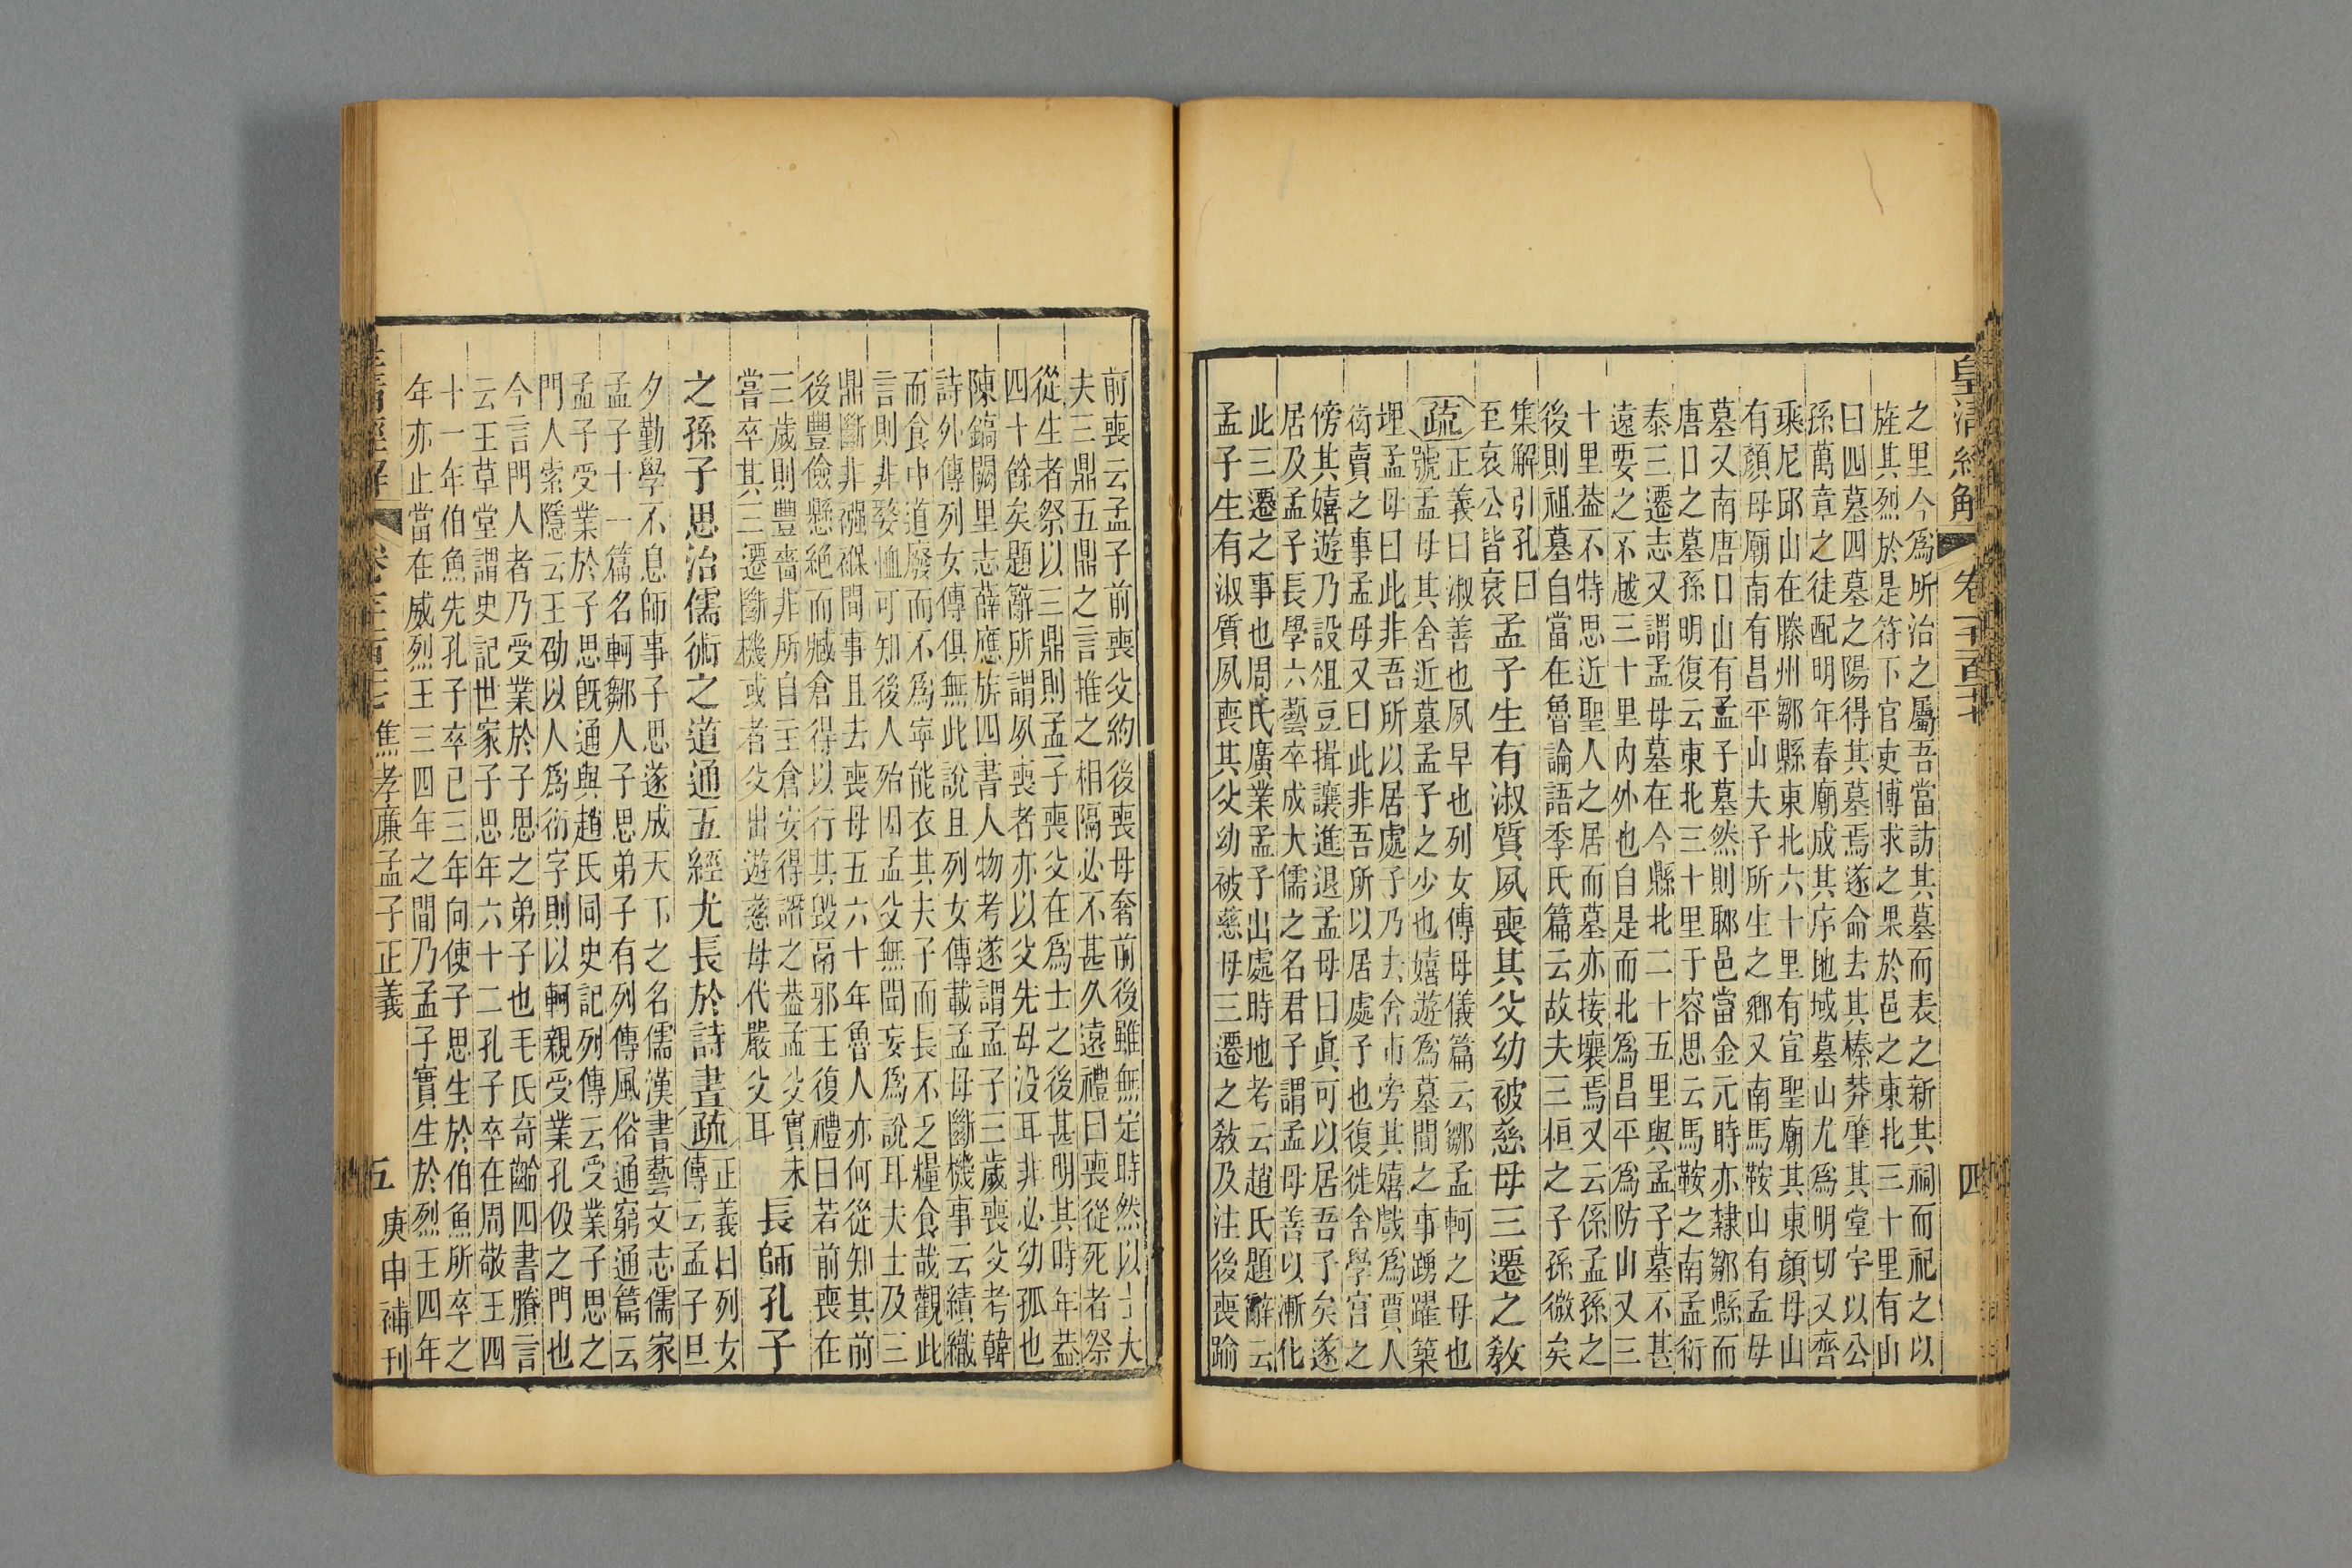 皇淸經解 卷一千百十七
四
之里今爲所治之屬吾當訪其墓而表之新其祠而祀之以
旌其烈於是符下官吏博求之果於邑之東北三十里有山
曰四墓四墓之陽得其墓焉遂命去其榛莽肇其堂宇以公
孫萬章之徒配明年春廟成其序地域墓山尤爲明切又齊
乘尼邱山在滕州鄒縣東北六十里有宣聖廟其東顏母山
有顏母廟南有昌平山夫子所生之鄉又南馬鞍山有孟母
墓又南唐口山有孟子墓然則鄹邑當金元時亦隸鄒縣而
唐口之墓孫明復云東北三十里于容思云馬鞍之南孟衍
泰三遷志又謂孟母墓在今縣北二十五里與孟子墓不甚
遠要之不越三十里內外也自是而北爲昌平爲防山又三
十里葢不特思近聖人之居而墓亦接壤焉又云係孟孫之
後則祖墓自當在魯論語季氏篇云故夫三桓之子孫微矣
集解引孔曰
至哀公皆衰
孟子生有淑質夙喪其父幼被慈母三遷之教
疏
正義曰淑善也夙早也列女傳母儀篇云鄒孟軻之母也
號孟母其舍近墓孟子之少也嬉遊爲墓間之事踴躍築
埋孟母曰此非吾所以居處子乃去舍市旁其嬉戲爲賈人
衒賣之事孟母又曰此非吾所以居處子也復徙舍學宮之
傍其嬉遊乃設俎豆揖讓進退孟母曰眞可以居吾子矣遂
居及孟子長學六藝卒成大儒之名君子謂孟母善以漸化
此三遷之事也周氏廣業孟子出處時地考云趙氏題辭云
孟子生有淑質夙喪其父幼被慈母三遷之敎及注後喪踰
前喪云孟子前喪父約後喪母奢前後雖無定時然以士大
夫三鼎五鼎之言推之相隔必不甚久遠禮曰喪從死者祭
從生者祭以三鼎則孟子喪父在爲士之後甚明其時年葢
四十餘矣題辭所謂夙喪者亦以父先母没耳非必幼孤也
陳鎬闕里志薛應旂四書人物考遂謂孟子三歲喪父考韓
詩外傳列女傳俱無此說且列女傳載孟母斷機事云績織
而食中道廢而不爲寧能衣其夫子而長不乏糧食哉觀此
言則非嫠恤可知後人殆因孟父無聞妄爲說耳夫士及三
鼎斷非襁褓間事且去喪母五六十年魯人亦何從知其前
後豐儉懸絶而臧倉得以行其毀鬲邪王復禮曰若前喪在
三歲則豐嗇非所自主倉安得譖之葢孟父實未
嘗卒其三遷斷機或者父出遊慈母代嚴父耳
長師孔子
之孫子思治儒術之道通五經尤長於詩書
疏
正義曰列女
傳云孟子旦
夕勤學不息師事子思遂成天下之名儒漢書藝文志儒家
孟子十一篇名軻鄒人子思弟子有列傳風俗通窮通篇云
孟子受業於子思旣通與趙氏同史記列傳云受業子思之
門人索隱云王劭以人爲衍字則以軻親受業孔伋之門也
今言門人者乃受業於子思之弟子也毛氏奇齡四書賸言
云王草堂謂史記世家子思年六十二孔子卒在周敬王四
十一年伯魚先孔子卒已三年向使子思生於伯魚所卒之
年亦止當在威烈王三四年之間乃孟子實生於烈王四年
焦孝廉孟子正義
五
庚申補刊